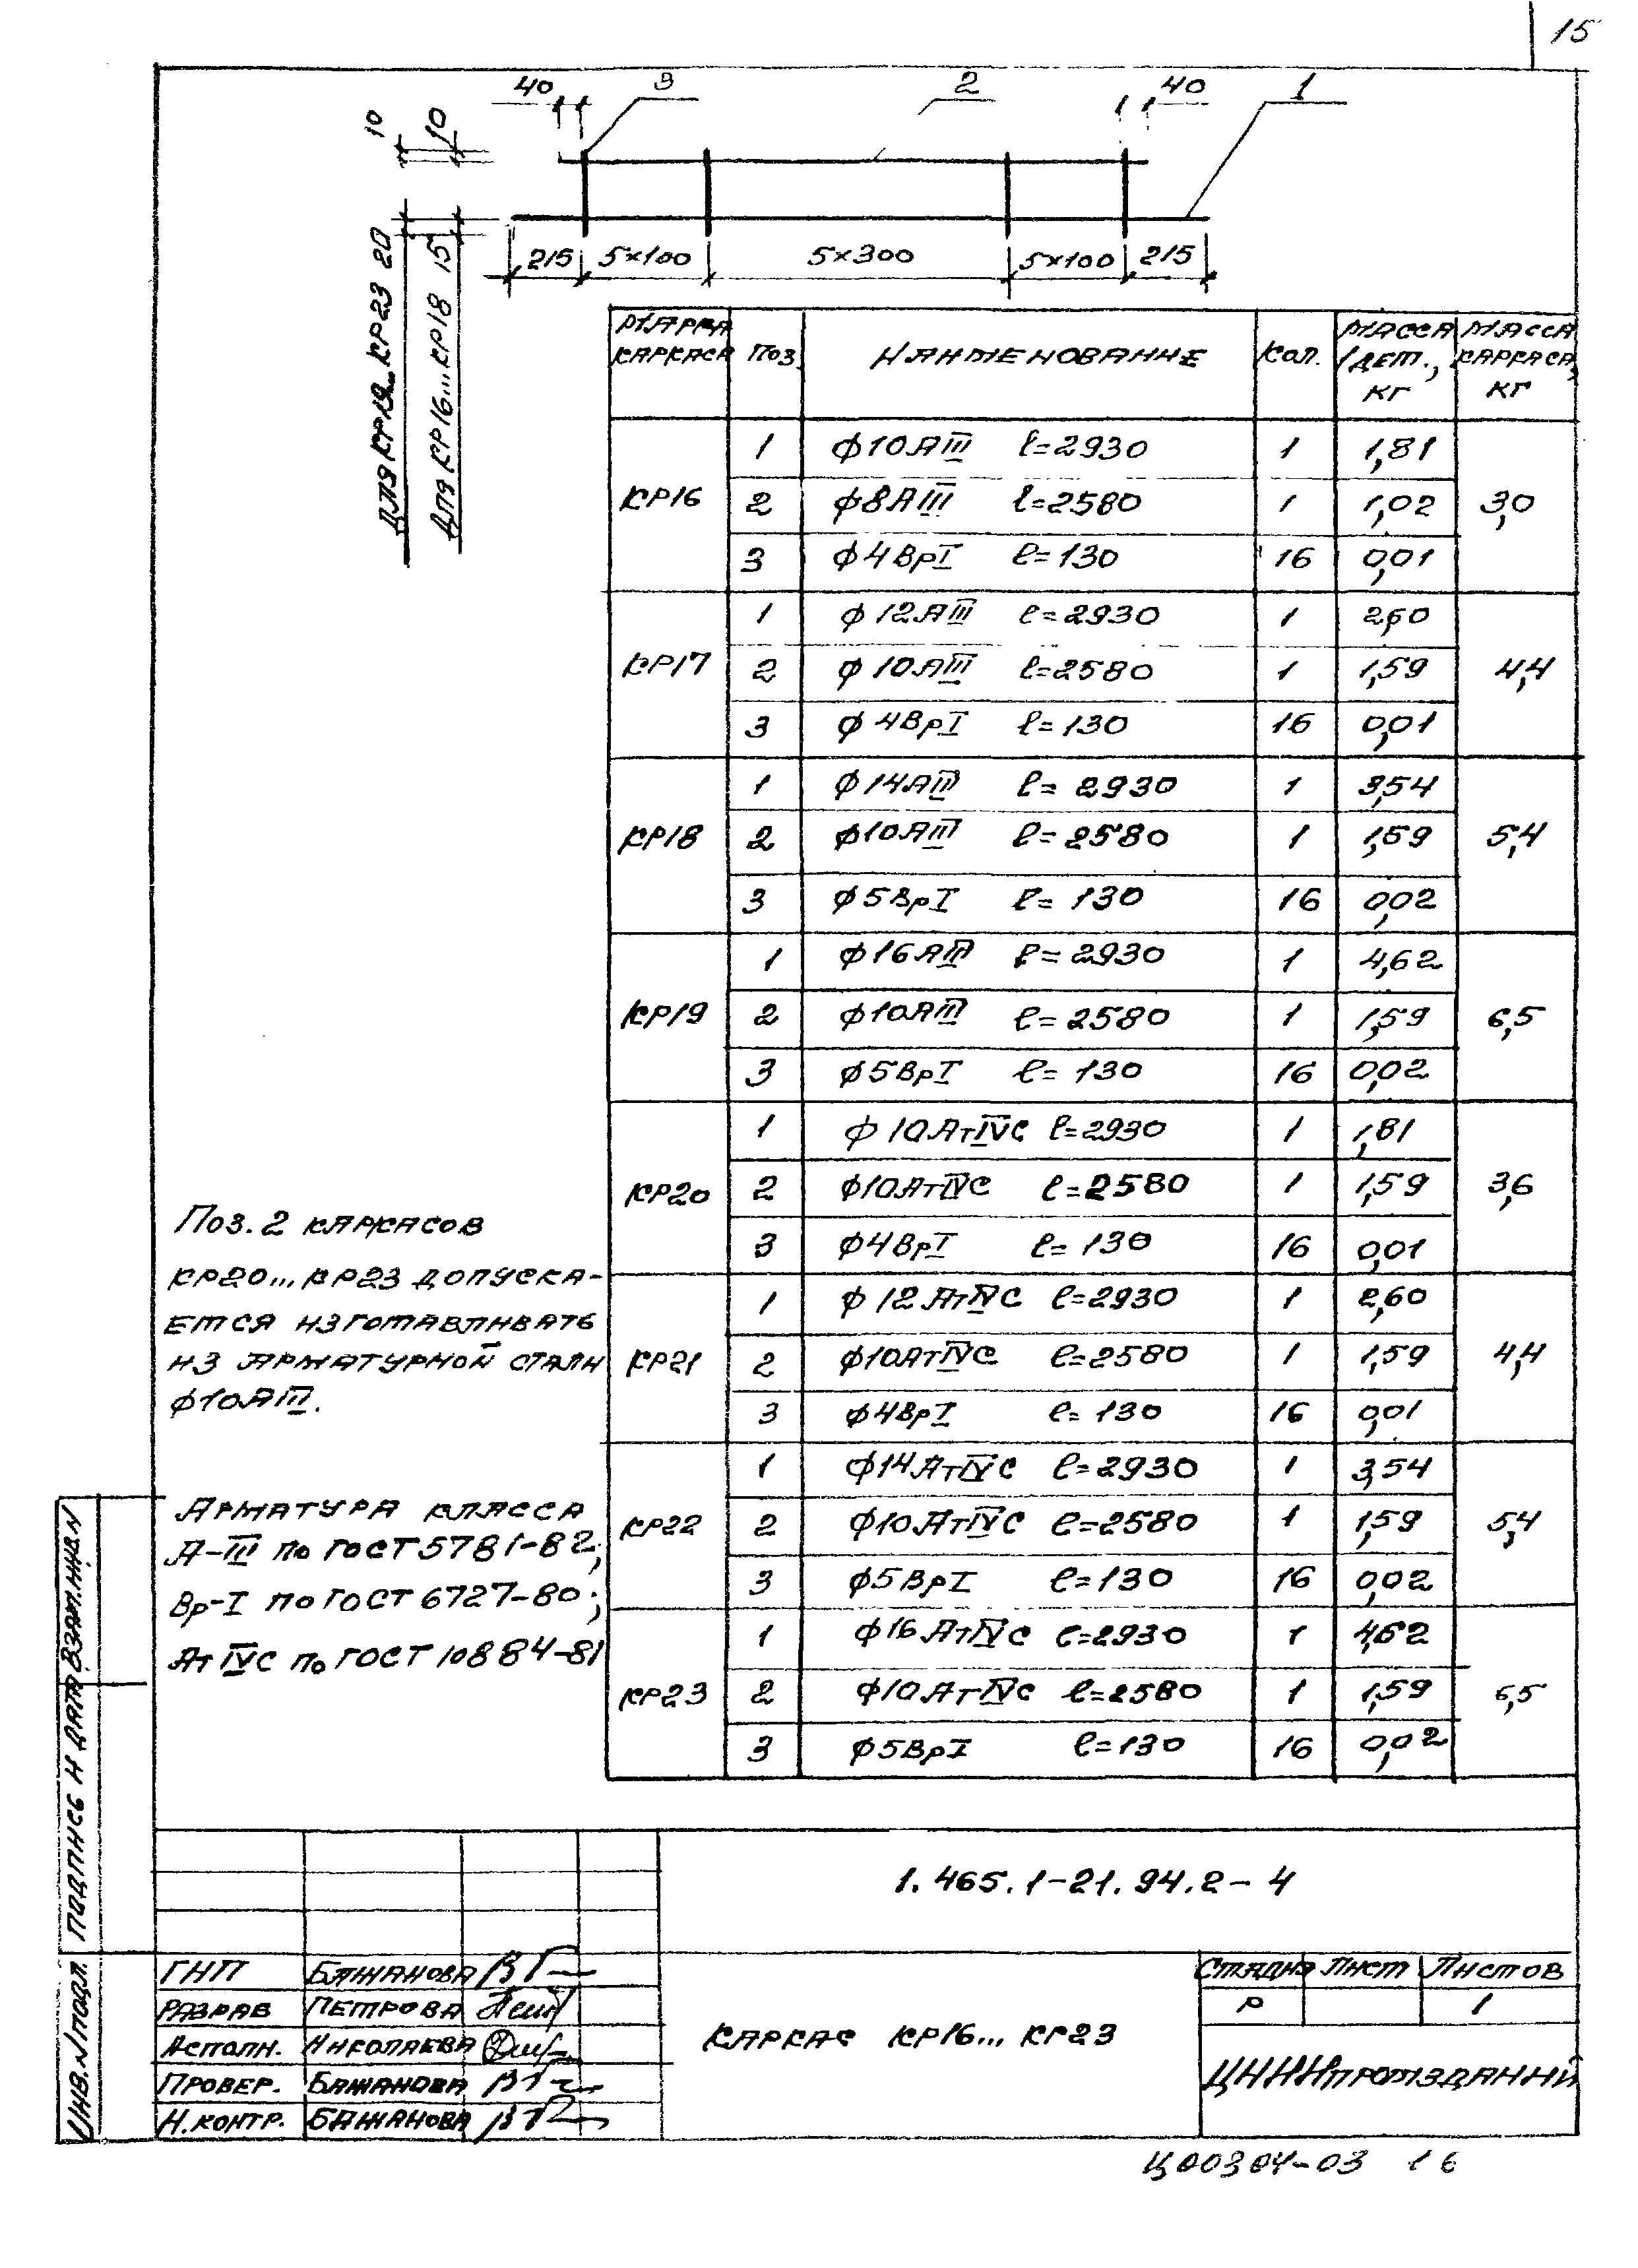 15
40 3 2 40 1
10 10
Для КР19...КР23 20
Для КР16...КР18 15
215 5×100 5×300 5×100 215
Марка каркаса Поз. Наименование Кол. Масса 1 дет., кг Масса каркаса, кг
КР16
1 ф10АIII ℓ=2930 1 1,81
2 ф8АIII ℓ=2580 1 1,02 3,0
3 ф4ВрI ℓ=130 16 0,01
КР17
1 ф12АIII ℓ=2930 1 2,60
2 ф10АIII ℓ=2580 1 1,59 4,4
3 ф4ВрI ℓ=130 16 0,01
КР18
1 ф14АIII ℓ=2930 1 3,54
2 ф10АIII ℓ=2580 1 1,59 5,4
3 ф5ВрI ℓ=130 16 0,02
КР19
1 ф16АIII ℓ=2930 1 4,62
2 ф10АIII ℓ=2580 1 1,59 6,5
3 ф5ВрI ℓ=130 16 0,02
КР20
1 ф10АтIVС ℓ=2930 1 1,81
2 ф10АтIVС ℓ=2580 1 1,59 3,6
3 ф4ВрI ℓ=130 16 0,01
КР21
1 ф12АтIVС ℓ=2930 1 2,60
2 ф10АтIVС ℓ=2580 1 1,59 4,4
3 ф4ВрI ℓ=130 16 0,01
КР22
1 ф14АтIVС ℓ=2930 1 3,54
2 ф10АтIVС ℓ=2580 1 1,59 5,4
3 ф5ВрI ℓ=130 16 0,02
КР23
1 ф16АтIVС ℓ=2930 1 4,62
2 ф10АтIVС ℓ=2580 1 1,59 6,5
3 ф5ВрI ℓ=130 16 0,02
Поз. 2 каркасов
КР20...КР23 допуска-
ется изготавливать
из арматурной стали
ф10АIII.
Арматура класса
А-III по ГОСТ 5781-82;
Вр-I по ГОСТ 6727-80;
АтIVС по ГОСТ 10884-81
Инв.№подл. Подпись и дата Взам.инв.№
1.465.1-21.94.2-4
ГИП Бажанова
Разраб Петрова
Исполн. Николаева
Провер. Бажанова
Н.контр. Бажанова
Каркас КР16...КР23
Стадия Лист Листов
Р 1
ЦНИИпромзданий
Ц00304-03 16